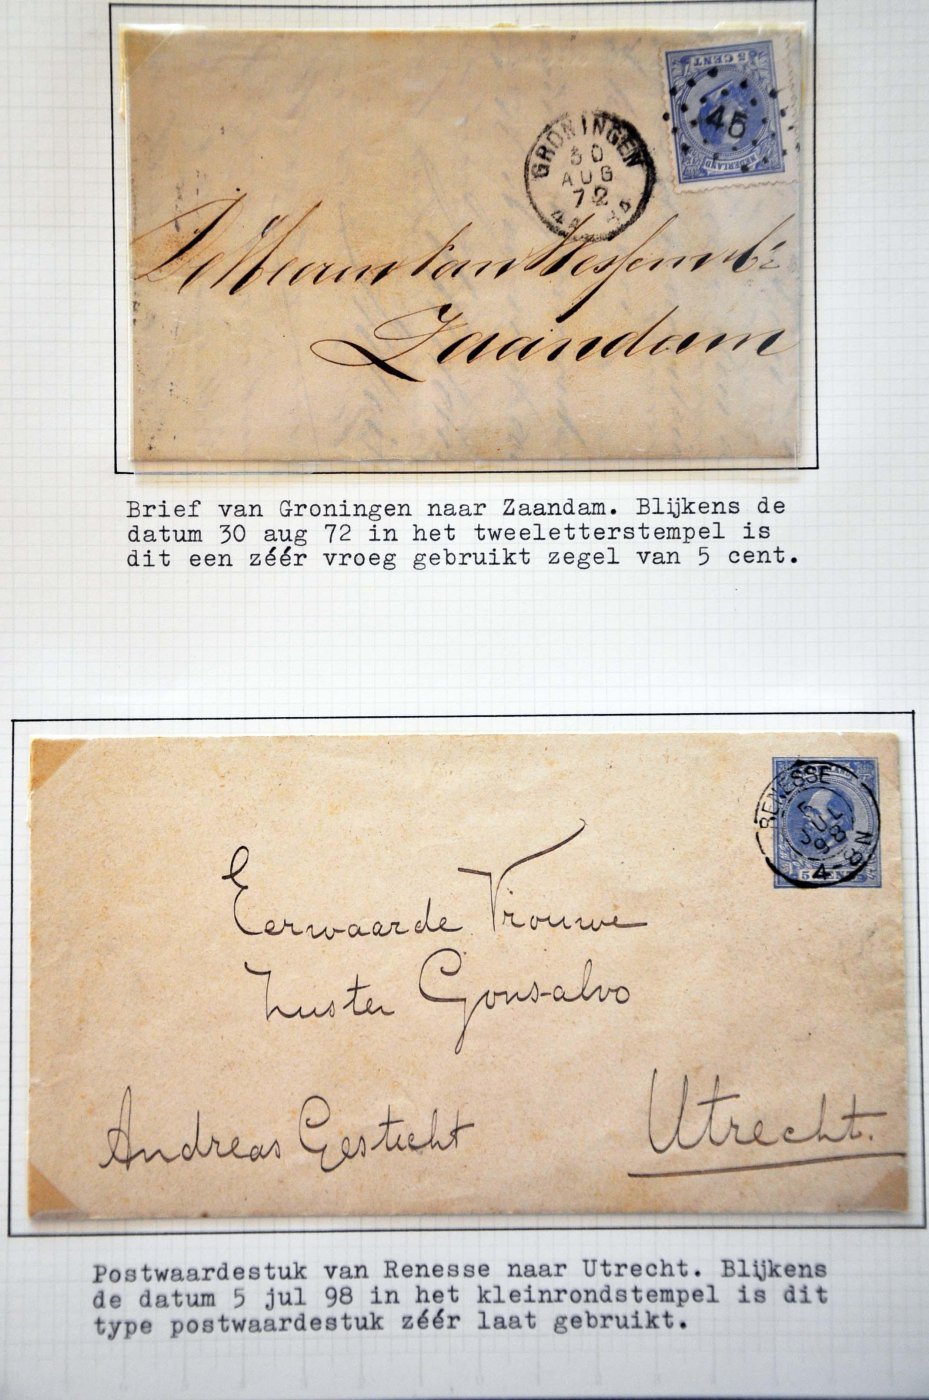 5 CENT
45
NEDERLAND
GRONINGEN
30
AUG
72
Zaandam
Brief van Groningen naar Zaandam. Blijkens de
datum 30 aug 72 in het tweeletterstempel is
dit een zéér vroeg gebruikt zegel van 5 cent.
RENESSE
5
JUL
98
4-8 N
5 CENT
Eerwaarde Vrouwe
Zuster Gonsalvo
Andreas Gesticht
Utrecht.
Postwaardestuk van Renesse naar Utrecht. Blijkens
de datum 5 jul 98 in het kleinrondstempel is dit
type postwaardestuk zéér laat gebruikt.